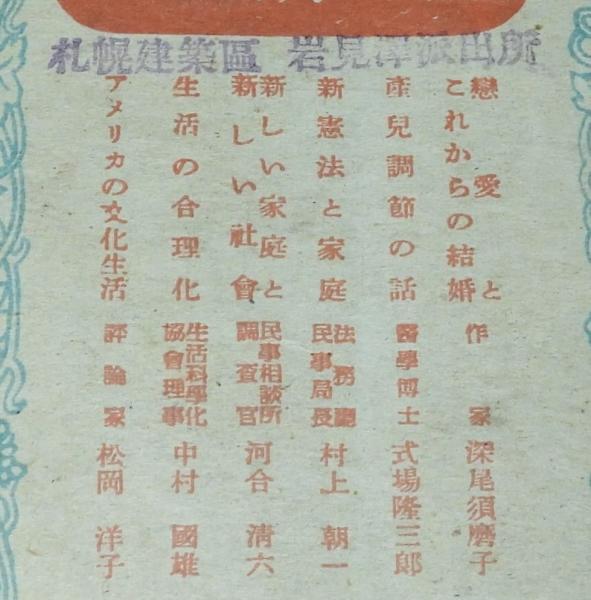 札幌建築區 岩見澤派出所
戀愛と
これからの結婚
作家 深尾須磨子
産兒調節の話 醫學博士 式場隆三郎
新憲法と家庭 法務廳
民事局長 村上朝一
新しい家庭と
新しい社會
民事相談所
調査官 河合清六
生活の合理化 生活科學化
協會理事 中村國雄
アメリカの文化生活 評論家 松岡洋子